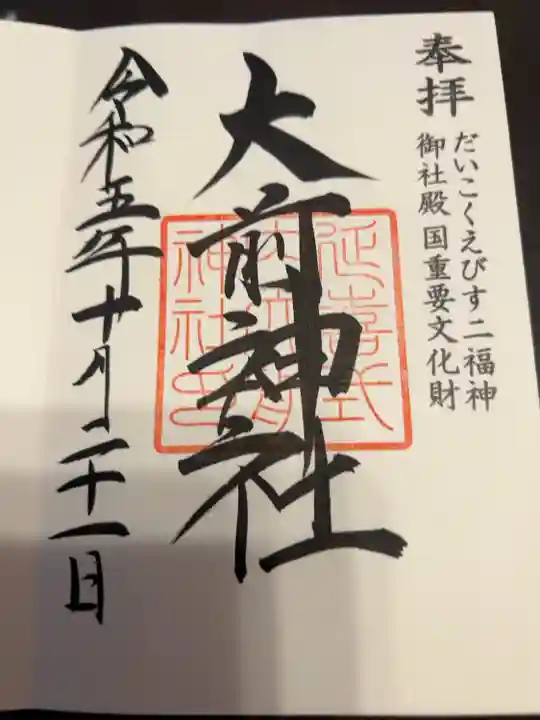 奉拝
だいこくえびす二福神
御社殿国重要文化財
大前神社
延喜式
神社
令和五年十月二十一日